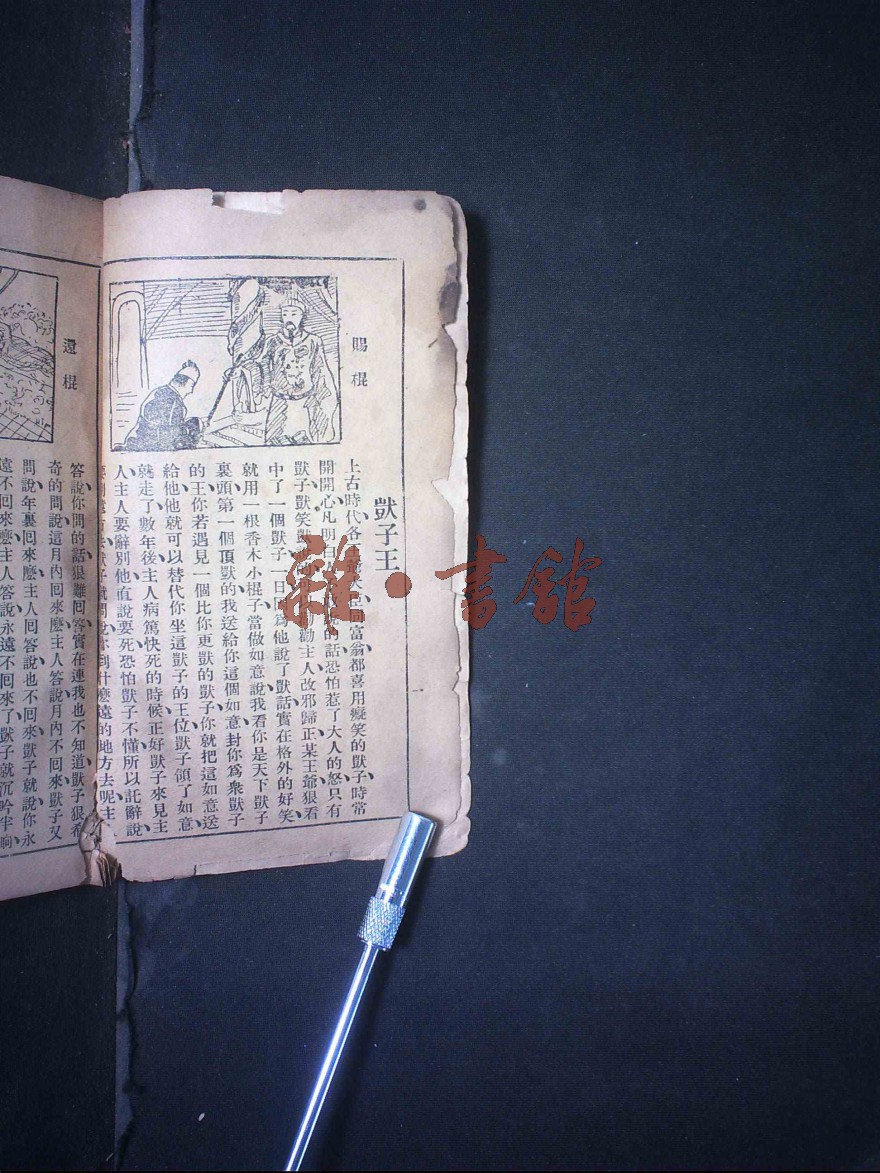 賜棍
獃子王
上古時代各王富翁都喜用癡笑的獃子時常
開開心凡明白的話恐怕惹了大人的怒只有
獃子獃笑勸主人改邪歸正某王爺狠看
中了一個獃子一日因爲他說了獃話實在格外的好笑
就用一根香木小棍子當做如意說我看你是天下獃子
裏頭第一個頂獃的我送給你這個如意封你爲衆獃子
的王你若遇見一個比你更獃的獃子你就把這如意送
給他他就可以替代你坐這獃子的王位獃子領了如意
就走了數年後主人病篤快死的時候正好獃子來見主
人主人要辭別他直說要死恐怕獃子不懂所以託辭說
獃子就問說你到什麼遠的地方去呢主
還棍
答說你問的話狠難回答實在連我也不知道獃子狠希
奇的問說這月內回來麼主人答說月內不回來獃子又
問說年裏回來麼主人回答說也不回來獃子就說你永
遠不回來麼主人答說永遠不回來了獃子就沉吟半晌
雜·書館